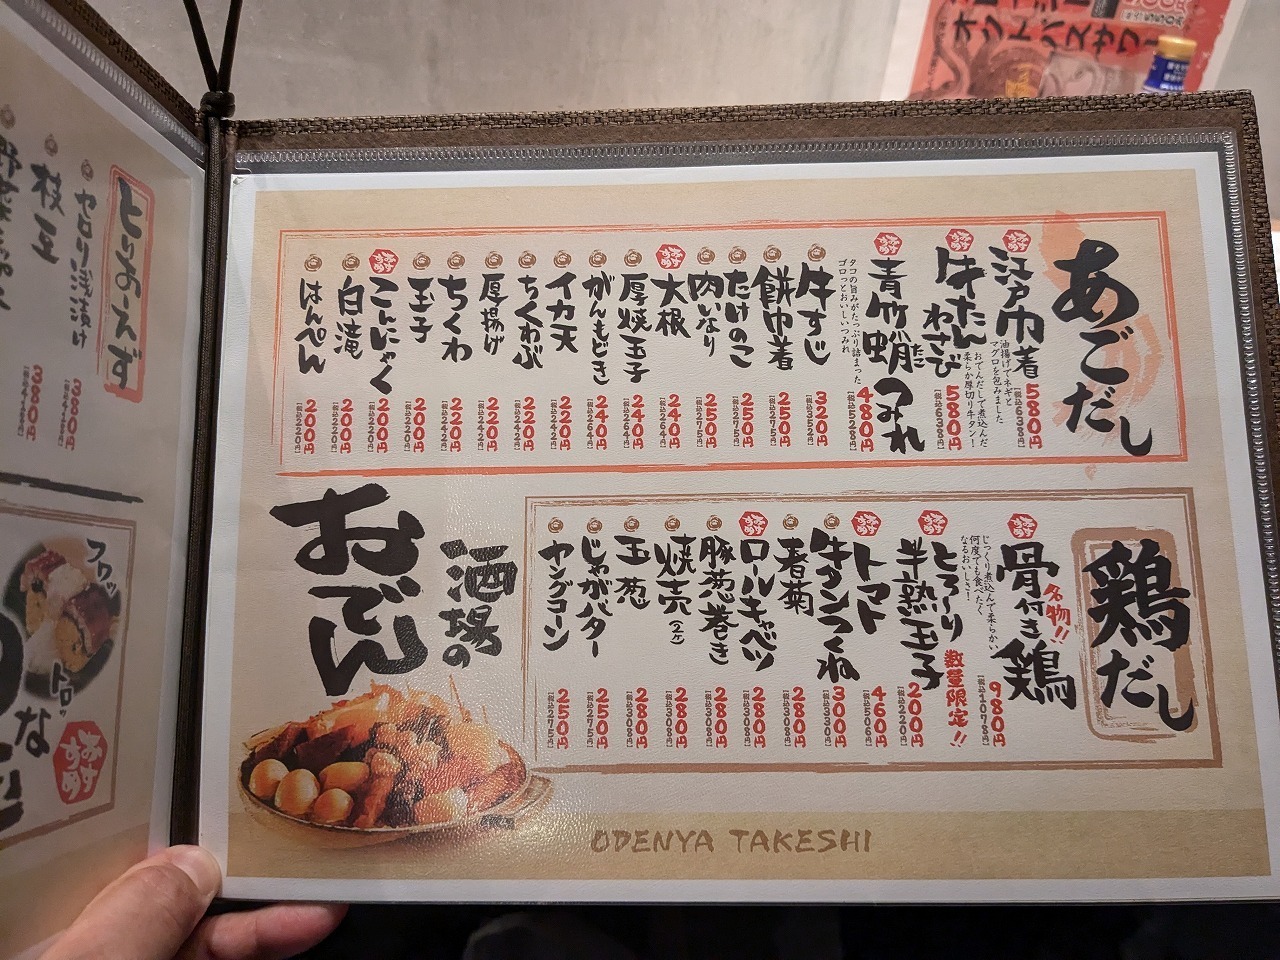 あごだし
おすすめ
江戸巾着
油揚げでネギと
マグロを包みました
580円
[税込638円]
おすすめ
牛たんわさび
おでんだしで煮込んだ
柔らか厚切り牛タン!
580円
[税込638円]
おすすめ
青竹蛸つみれ
たこ
タコの旨みがたっぷり詰まった
ゴロっとおいしいつみれ
480円
[税込528円]
牛すじ
320円
[税込352円]
餅巾着
250円
[税込275円]
たけのこ
250円
[税込275円]
肉いなり
250円
[税込275円]
おすすめ
大根
240円
[税込264円]
厚焼玉子
240円
[税込264円]
がんもどき
240円
[税込264円]
イカ天
220円
[税込242円]
ちくわぶ
220円
[税込242円]
厚揚げ
220円
[税込242円]
ちくわ
220円
[税込242円]
玉子
200円
[税込220円]
おすすめ
こんにゃく
200円
[税込220円]
白滝
200円
[税込220円]
はんぺん
200円
[税込220円]
鶏だし
おすすめ
骨付き鶏
名物!!
じっくり煮込んで柔らかい
何度でも食べたく
なるおいしさ!
980円
[税込1078円]
おすすめ
とろ〜り
半熟玉子
数量限定!!
200円
[税込220円]
おすすめ
トマト
460円
[税込506円]
牛タンつくね
300円
[税込330円]
春菊
280円
[税込308円]
おすすめ
ロールキャベツ
280円
[税込308円]
豚葱巻き
280円
[税込308円]
焼売(2ケ)
280円
[税込308円]
玉葱
280円
[税込308円]
じゃがバター
250円
[税込275円]
ヤングコーン
250円
[税込275円]
酒場の
おでん
ODENYA TAKESHI
とりあえず
セロリ浅漬け
380円
枝豆
380円
フワッ
トロッ
おすすめ